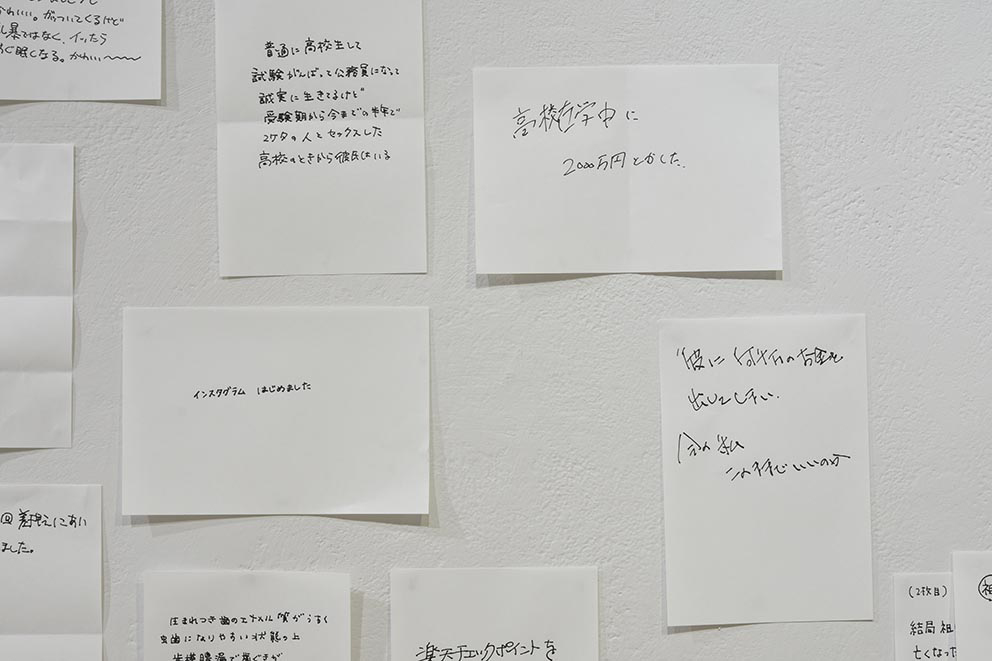 かわいい。がっついてくるけど
乱暴ではなく、イッたら
すぐ眠くなる。かわい〜〜〜
普通に高校生して
試験がんばって公務員になって
誠実に生きてるけど
受験期から今までの半年で
2ケタの人とセックスした
高校のときから彼氏はいる
高校在学中に
2000万円とかした。
インスタグラム はじめました
彼に
のお金を
出して
今の私
この
いいのか
回 着拒にあい
ました。
生まれつき歯のエナメル質がうすく
虫歯になりやすい状態の上
歯槽膿漏で歯ぐきが
楽天チェックポイントを
(2枚目)
結局 祖
亡くなった
祖